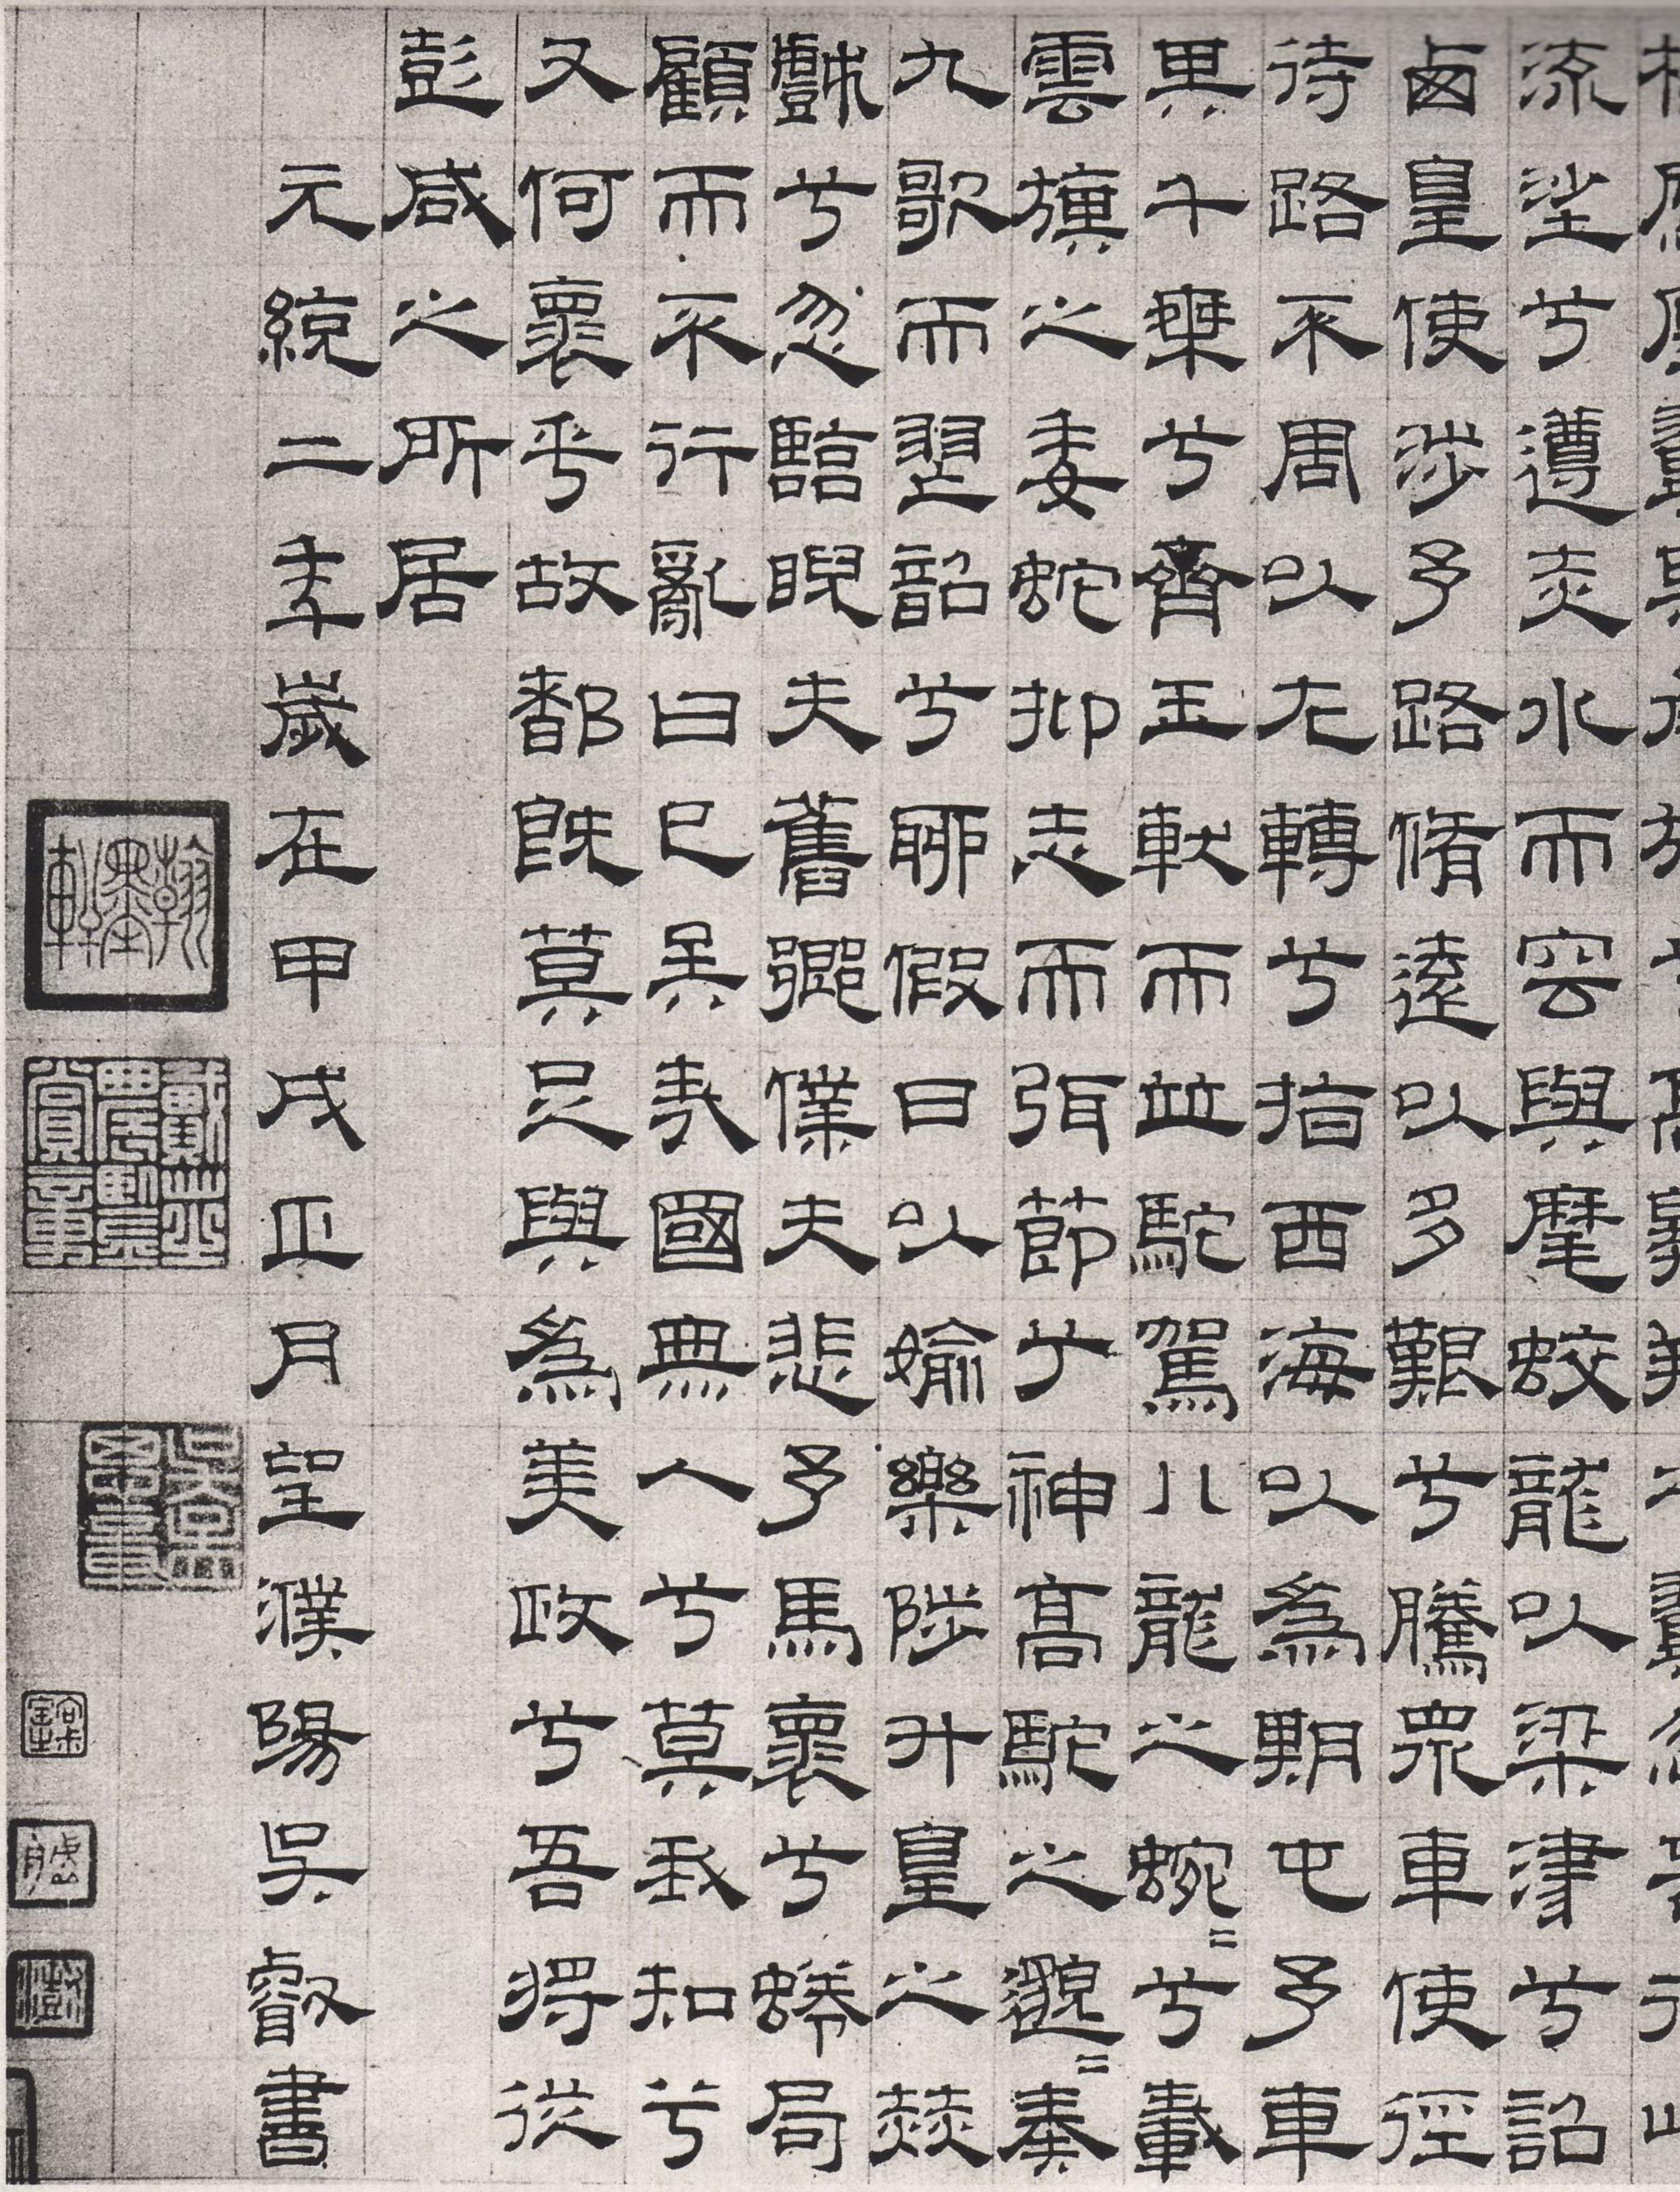 流沙兮遵赤水而容與麾蛟龍以梁津兮詔
西皇使涉予路脩遠以多艱兮騰眾車使徑
待路不周以左轉兮指西海以為期屯予車
其千乘兮齊玉軑而並馳駕八龍之蜿=兮載
雲旗之委蛇抑志而弭節兮神高馳之邈=奏
九歌而舞韶兮聊假日以媮樂陟升皇之赫
戲兮忽臨睨夫舊鄉僕夫悲予馬懷兮蜷局
顧而不行亂曰已矣哉國無人兮莫我知兮
又何懷乎故都既莫足與為美政兮吾將從
彭咸之所居
元統二年歲在甲戌正月望濮陽吳叡書
翰墨軒